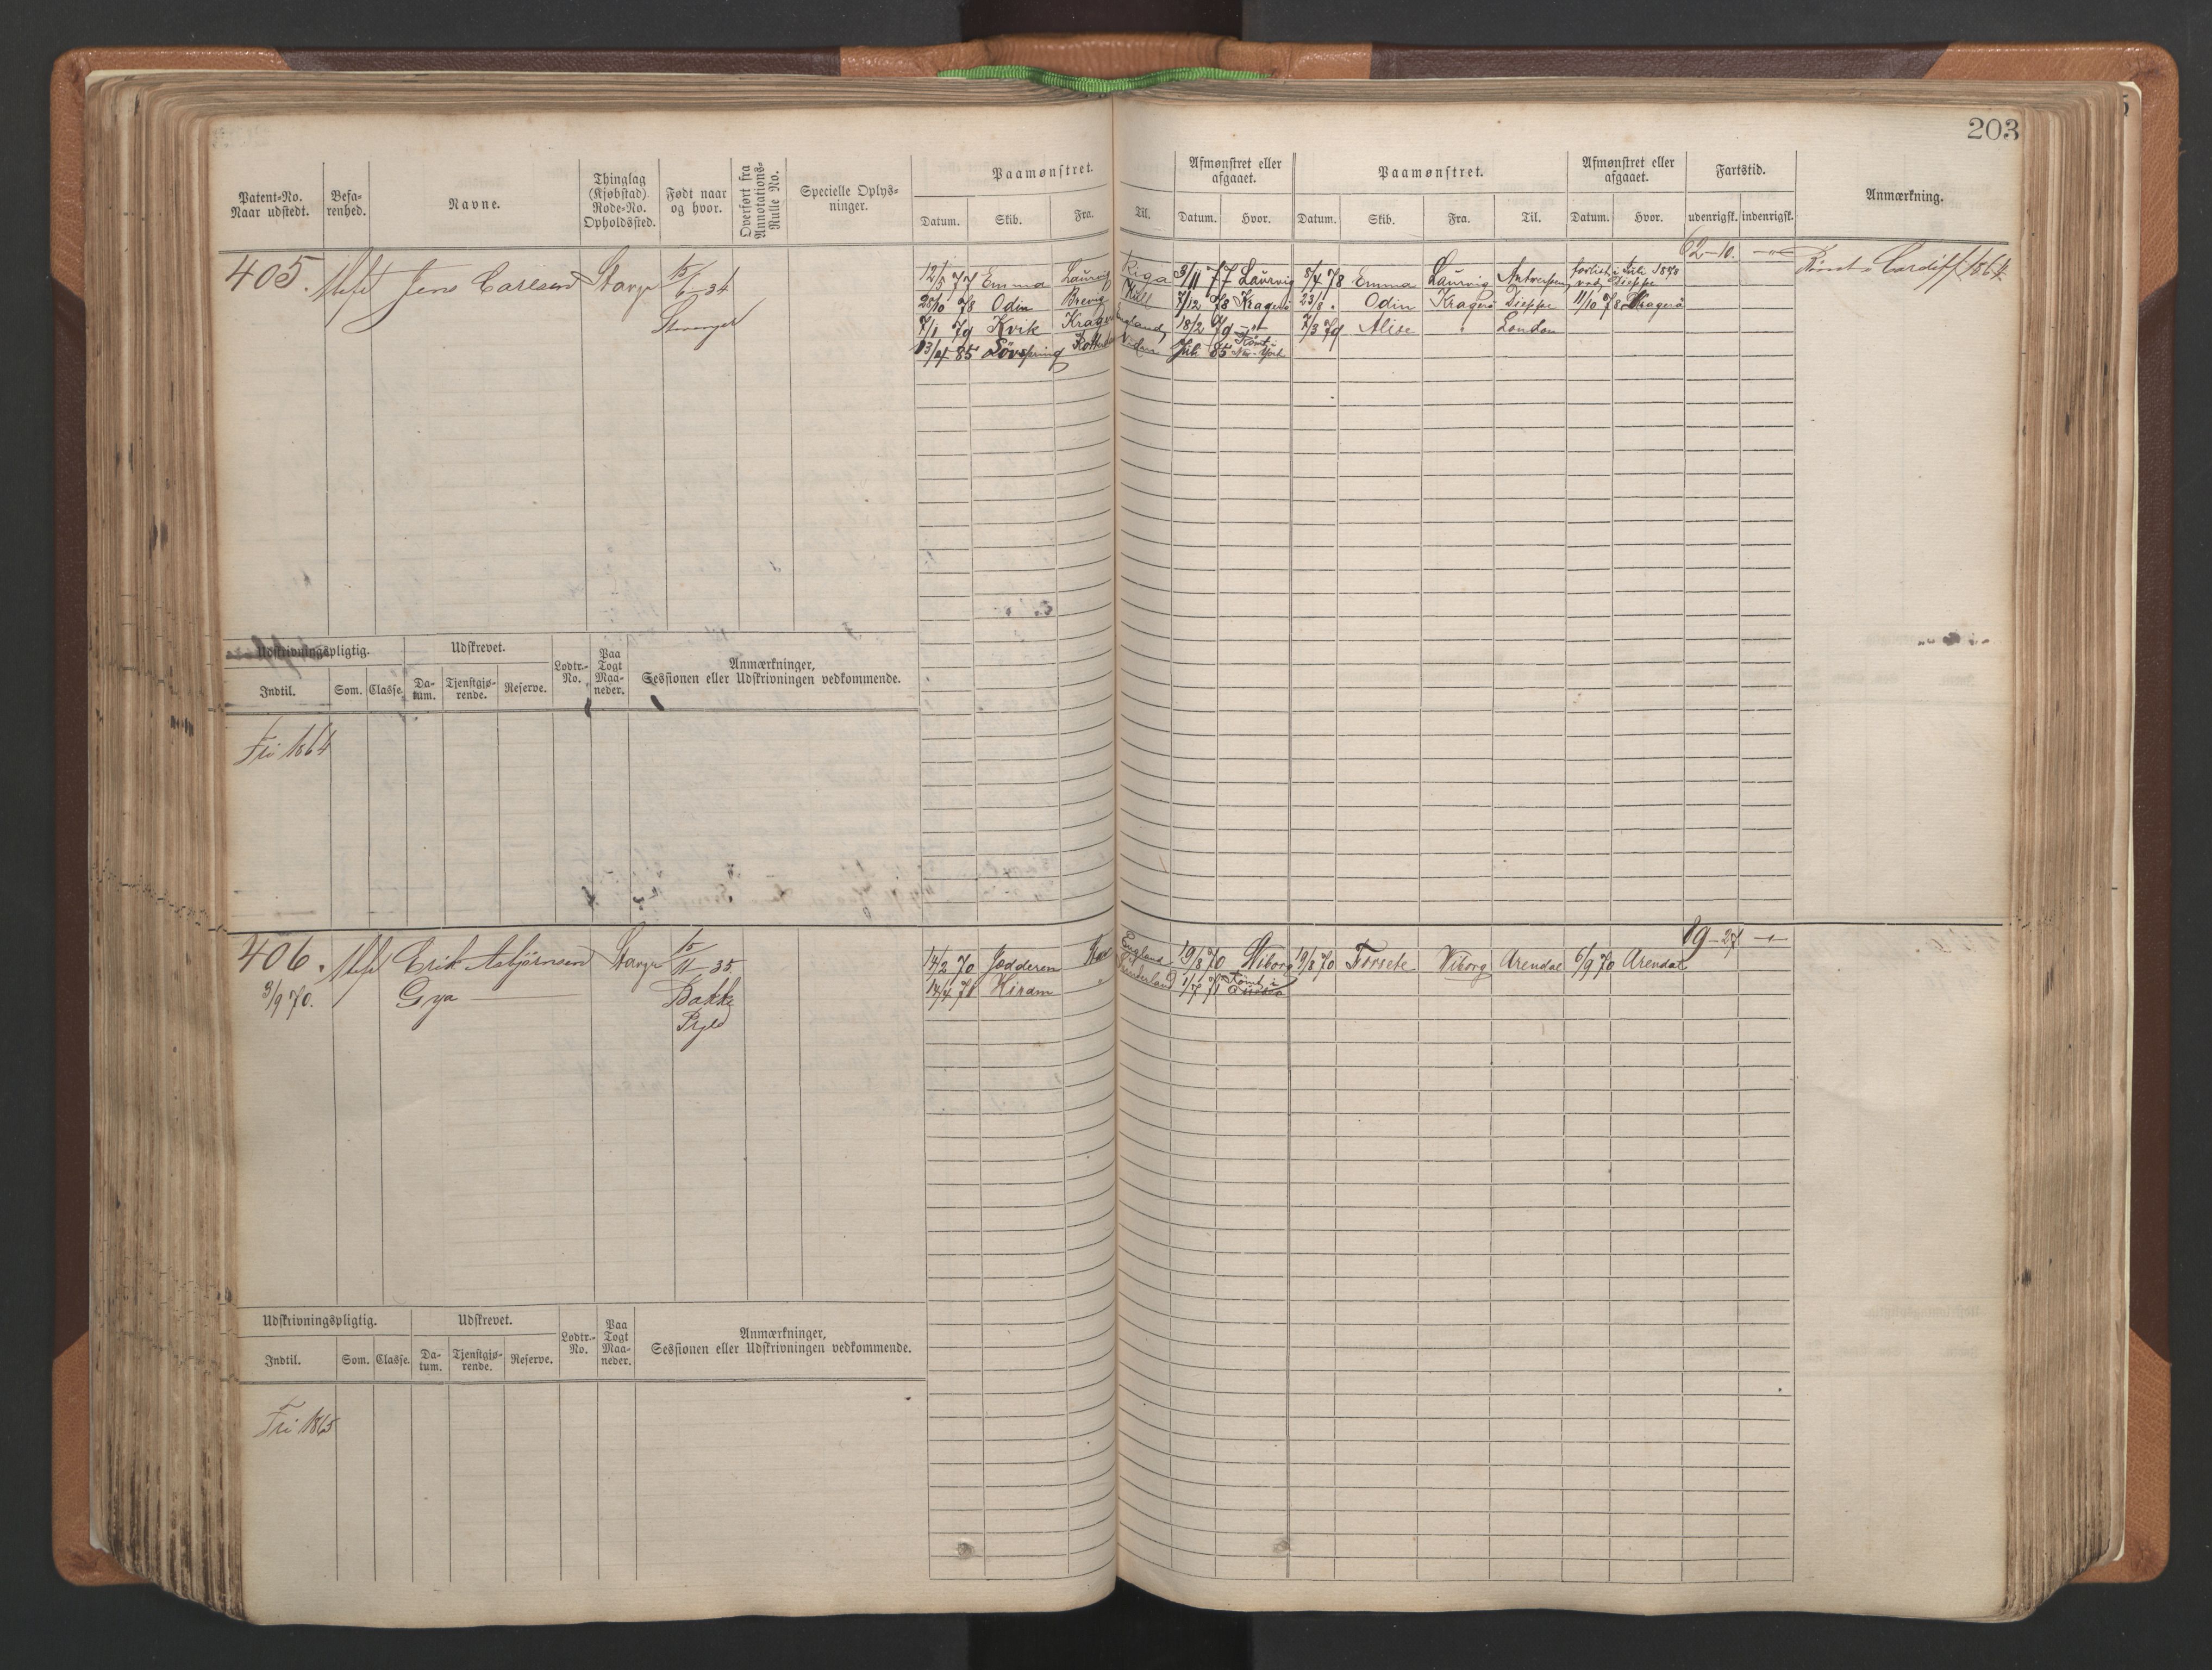 203
Patent-No. Naar udstedt. Befa-renhed. Navne. Thinglag (Kjøbstad). Rode-No. Opholdssted. Født naar og hvor. Overført fra Annotations-Rulle No. Specielle Oplys-ninger. Paamønstret. Afmønstret eller afgaaet. Paamønstret. Afmønstret eller afgaaet. Fartstid. Anmærkning.
Datum. Skib. Fra. Til. Datum. Hvor. Datum. Skib. Fra. Til. Datum. Hvor. udenrigsk. indenrigsk.
62-10.
405. Jens Carlsen Stavgr 15/6-34 12/5 77 Emma Laurvig Riga 3/11 77 Laurvig 5/4 78 Emma Laurvig Antwerpen forlist i Juli 1878 ved Dieppe Rømt i Cardiff 1864.
Stavanger 25/10 78 Odin Brevig Hull 7/12 78 Kragerö 23/8 Odin Kragerö Dieppe 11/10 78 Kragerö
7/1 79 Kvik Kragerö England 18/2 79 -"- 7/3 79 Alise " London
13/4 85 Lövspring Juli 85 Rømt i New-York
Udskrivningspligtig. Udskrevet. Lodtr.-No. Paa Togt Maa-neder. Anmærkninger, Sessionen eller Udskrivningen vedkommende.
Indtil. Som. Classe. Da-tum. Tjenstgjø-rende. Reserve.
Fri 1864
19-27
406. Erik Asbjörnsen Stavgr 15/11-35. 14/2 70 Jædderen England 19/8 70 Wiborg 19/8 70 Forsete Wiborg Arendal 6/9 70 Arendal
3/9 70. Gya Bakke 14/4 71 Hiram " 1/7 71 Rømt i
Udskrivningspligtig. Udskrevet. Lodtr.-No. Paa Togt Maa-neder. Anmærkninger, Sessionen eller Udskrivningen vedkommende.
Indtil. Som. Classe. Da-tum. Tjenstgjø-rende. Reserve.
Fri 1865